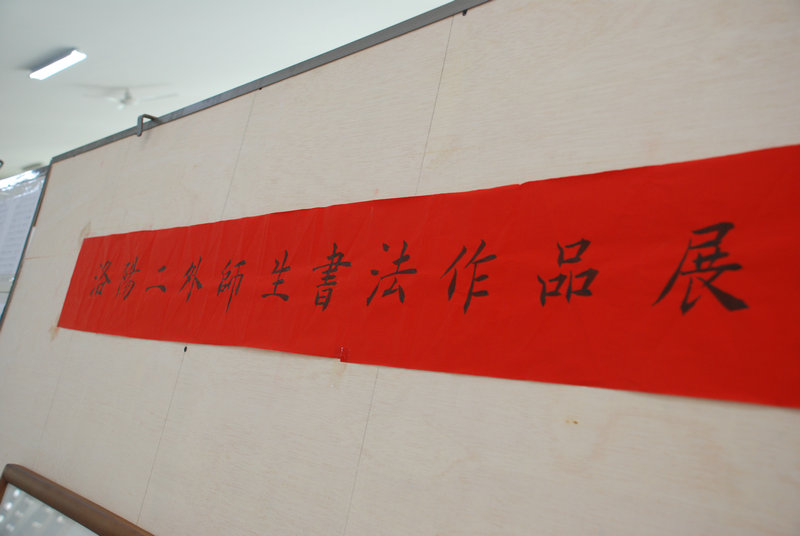 洛陽二外師生書法作品展